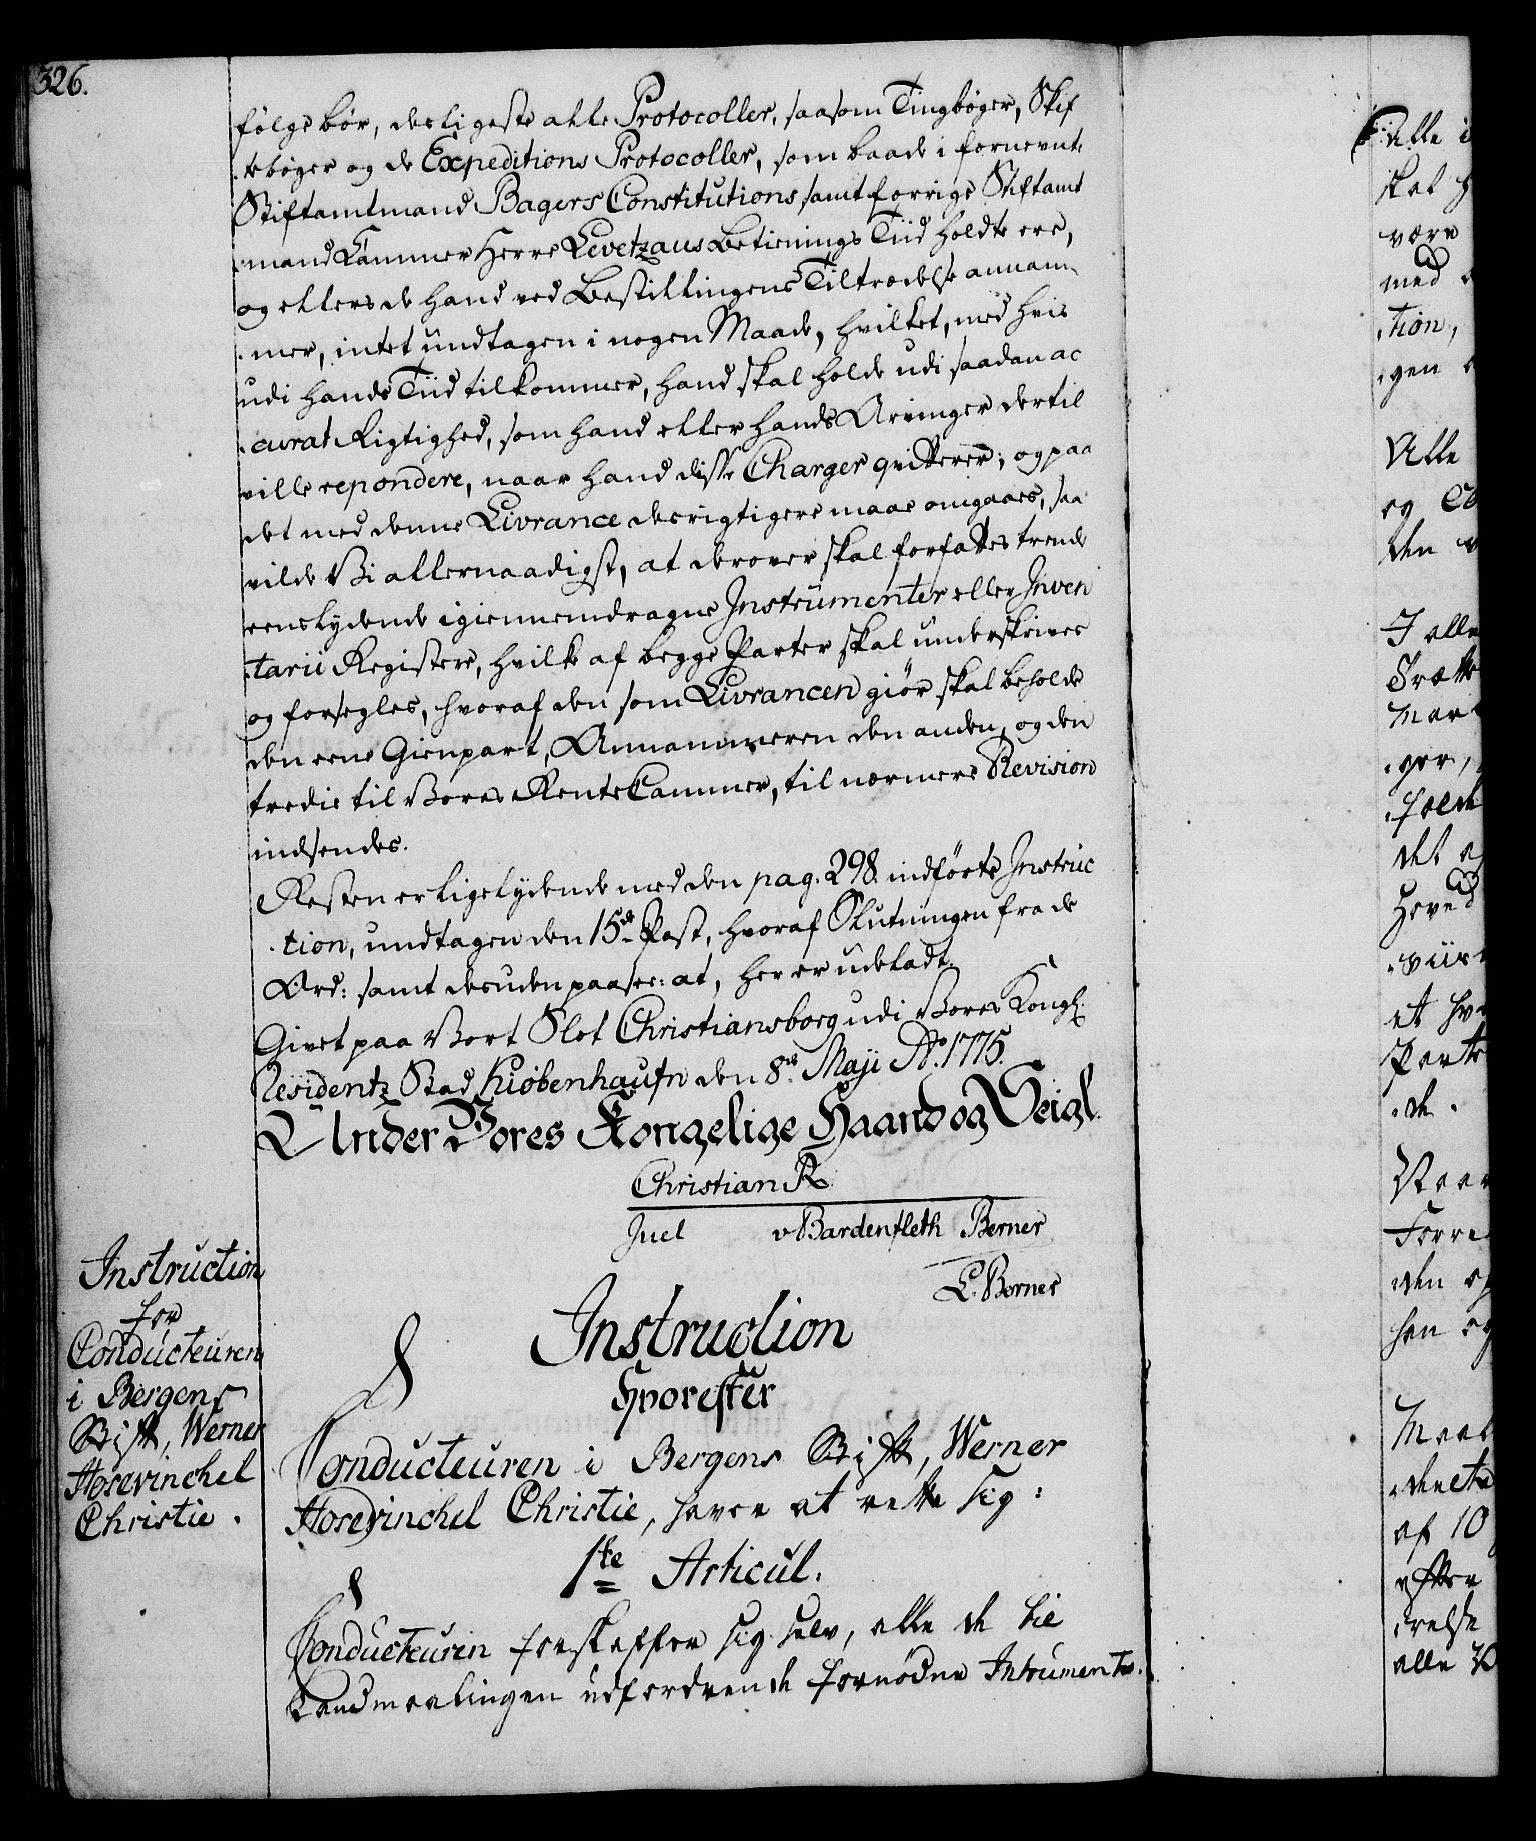 326.
følge bør, desligeste alle Protocoller, saasom Tingbøger, Skif
tebøger og de Expeditions Protocoller, som baade i fornevnte
Stiftamtmand Bagers Constitutions, samt forrige Stiftamt
mand Kammer Herre Levetzaus Betienings Tiid holdte ere,
og ellers de hand ved Bestillingens Tiltrædelse annam-
mer, intet undtagen i nogen Maade, hvilket, med hvis
udi hands Tiid tilkommer, hand skal holde udi saadan ac
curat Rigtighed, som hand eller hands Arvinger dertil
ville repondere, naar hand disse Charger qvitterer; og paa
det med denne Livrance desrigtigere maae omgaaes, saa
vilde Vi allernaadigst, at derover skal forfattes trende
eenslydende igiennemdragne Instrumenter eller Inven
tarii Registere, hvilke af begge Parter skal underskrives
og forsegles, hvoraf den som Livrancen giør skal beholde
den eene Gienpart, Annammeren den anden, og den
tredie til Vores Rente Cammer, til nærmere Revision
indsendes.
Resten er ligelydende med den pag. 298. indførte Instruc
tion, undtagen den 15de Post, hvoraf Slutningen fra de
Ord: samt desuden paasee: at, her er udeladt.
Givet paa Vort Slot Christiansborg udi Vores Kongl.
Residentz Stad Kiøbenhaufn den 8de Maji Ao. 1775.
Under Vores Kongelige Haand og Seigl.
Christian R
Juel v Bardenfleth Berner
L. Berner
Instruction
for
Conducteuren
i Bergens
Stift, Werner
Hosevinchel
Christie.
Instruction
Hvorefter
Conducteuren i Bergens Stift, Werner
Hosevinchel Christie, haver at rette sig:
1te Articul.
Conducteuren forskaffer sig selv, alle de til
Landmaalingen udfordrende fornødne Intrumenter.
Alle i
skal
være
med
tion,
gen
Alle
og
den
I alle
det
af 10
alle